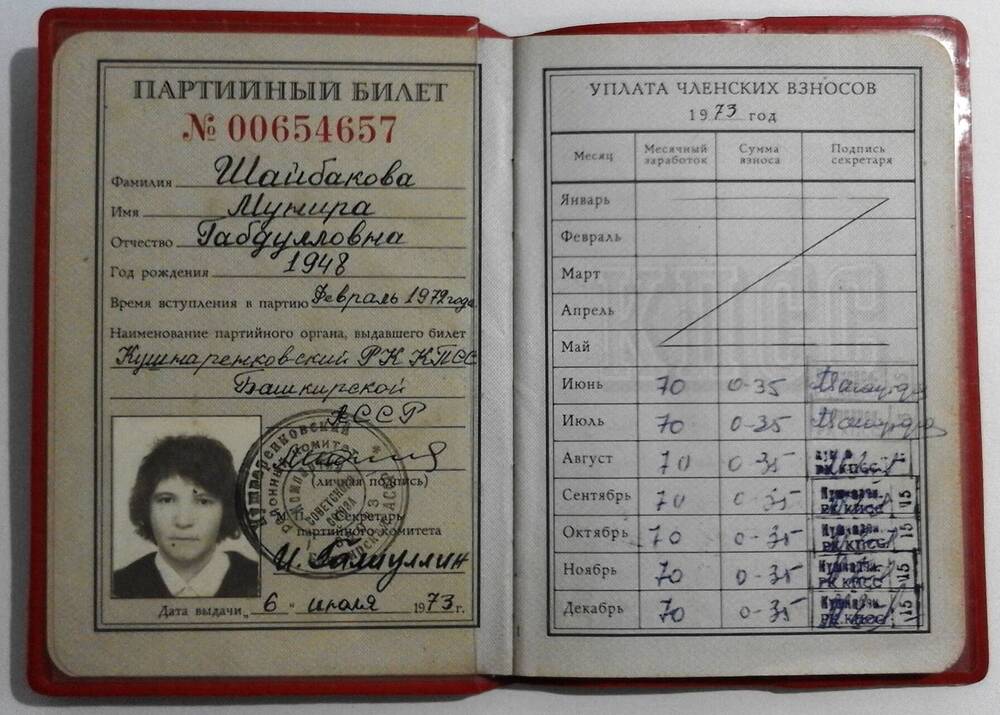 ПАРТИЙНЫЙ БИЛЕТ
№ 00654657
Фамилия Шайбакова
Имя Мунира
Отчество Габдулловна
Год рождения 1948
Время вступления в партию Февраль 1972 года
Наименование партийного органа, выдавшего билет
Кушнаренковский РК КПСС
Башкирской
АССР
(личная подпись)
М. П. Секретарь
партийного комитета
И. Галиуллин
Дата выдачи „ 6 “ июля 1973 г.
УПЛАТА ЧЛЕНСКИХ ВЗНОСОВ
1973 год
Месяц Месячный заработок Сумма взноса Подпись секретаря
Январь
Февраль
Март
Апрель
Май
Июнь 70 0-35
Июль 70 0-35
Август 70 0-35 РК КПСС
Сентябрь 70 0-35 Кушнарен. РК КПСС
Октябрь 70 0-35 Кушнарен. РК КПСС
Ноябрь 70 0-35 Кушнарен. РК КПСС
Декабрь 70 0-35 Кушнарен. РК КПСС
КПСС